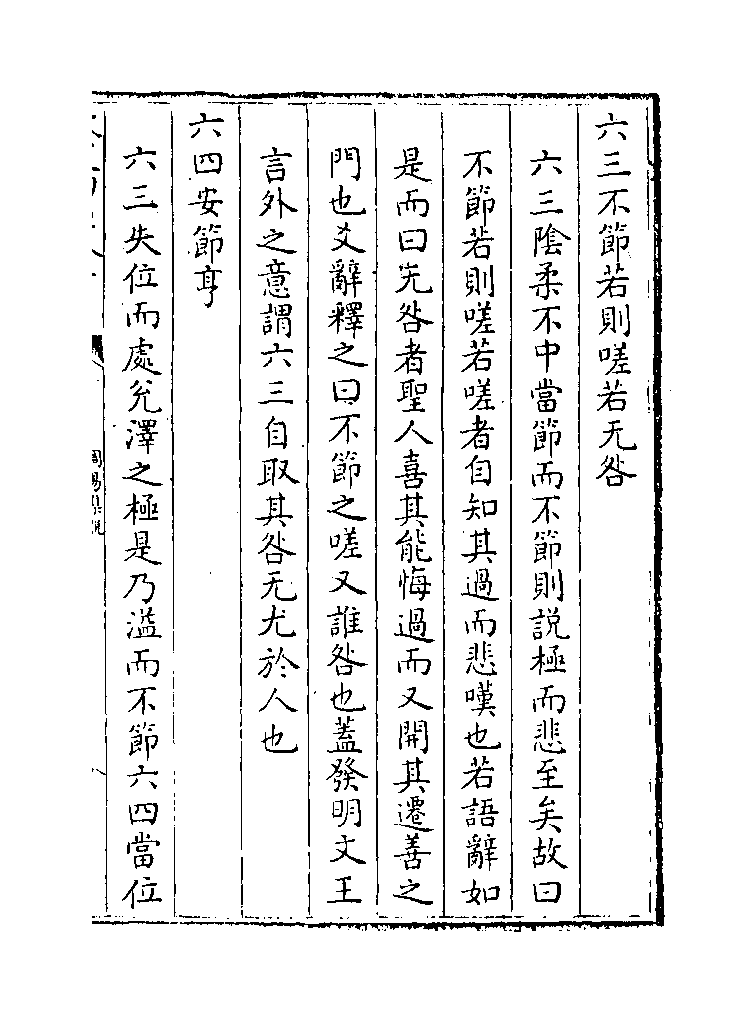 六三不節若則嗟若无咎
六三陰柔不中當節而不節則説極而悲至矣故曰
不節若則嗟若嗟者自知其過而悲嘆也若語辭如
是而曰无咎者聖人喜其能悔過而又開其遷善之
門也爻辭釋之曰不節之嗟又誰咎也蓋發明文王
言外之意謂六三自取其咎无尤於人也
六四安節亨
六三失位而處兊澤之極是乃溢而不節六四當位
周易集說